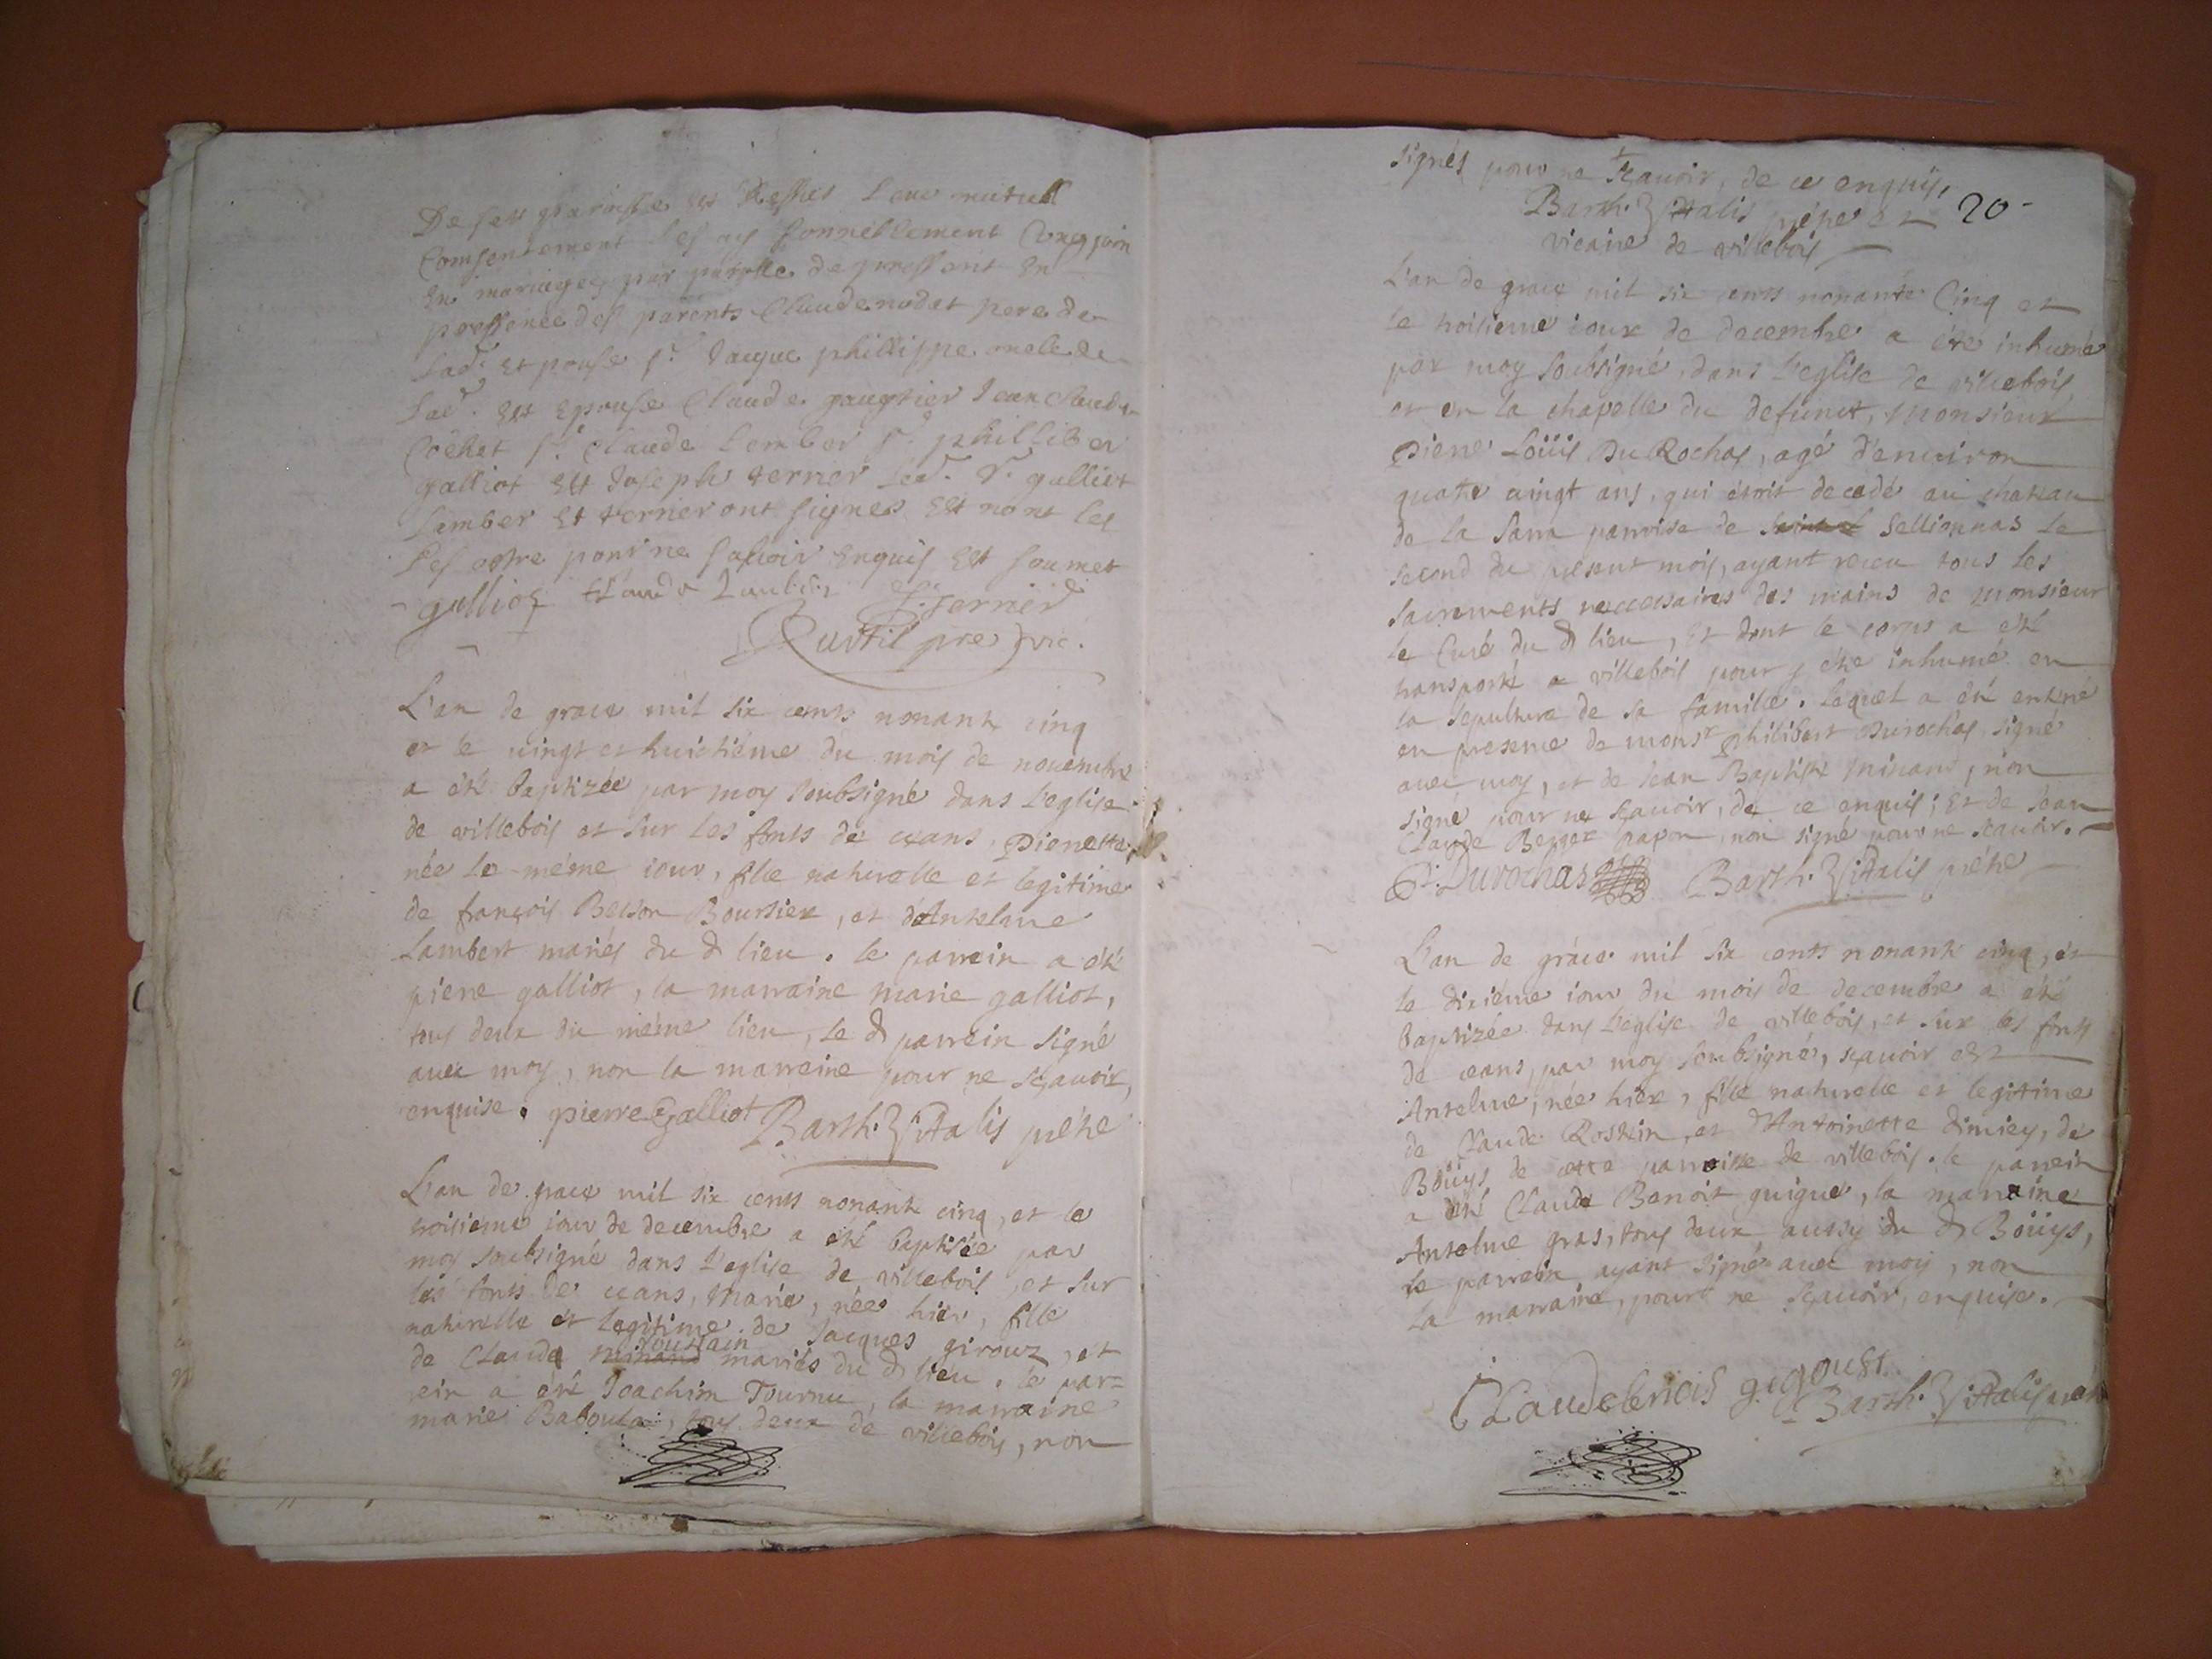 De ses paroisse et Resseu leur mutuel
Consentement les ay sonnellement Congjoin
En mariages par parolle de pressent En
pressence des parents Claude nodet pere de
lad. Et pouse Sr. Jacque phillippe oncle de
lad. Ett Epouse Claude Jean Claude
Cochet Sr. Claude Lember Sr. philliber
galliot Ett Joseph verner Led. Sr. galliot
Lember Et verner ont signes Ett nont les
Les ostre pour ne savoir Enquis Ett soumet
galliot Claude Lember J. verner
pre vic.
L'an de grace mil six cents nonante cinq
et le vingt et huictiéme du mois de novembre
a été baptizée par moy soubsigné dans l'eglise
de villebois et sur les fonts de ceans, Pierrette,
née le méme iour, fille naturelle et legitime
de françois Besson Boursier, et d'Antelme
Lambert mariés du d lieu. le parrein a été
pierre galliot, la marraine marie galliot,
tous deux du méme lieu, le d parrein signé
avec moy, non la marreine pour ne sçavoir,
enquise. pierre Galliot Barth. Vitalis prétre
L'an de grace mil six cents nonante cinq, et le
troisieme jour de decembre a été baptisée par
moy soubsigné dans l'eglise de villebois, et sur
les fonts de ceans, Marie, née hier, fille
naturelle et legitime de Jacques girouz, et
de Claude minand mariés du d lieu. le par=
rein a été Joachim Tournu, la marraine
marie Baboula, tous deux de villebois, non
signés pour ne sçavoir, de ce enquis,
Barth. Vitalis prétre et 20
vicaire de villebois
L'an de grace mil six cents nonante Cinq et
le troisieme iour de decembre a été inhumé
par moy soubsigné, dans l'eglise de villebois,
et en la chapelle du defunct, Monsieur
Pierre Loüis Du Rochas, agé d'environ
quatre vingt ans, qui étoit decedé au chateau
de la Sarra parroise de Sellionnas le
second du present mois, ayant receu tous les
sacrements neccessaires des mains de monsieur
le Curé du d lieu, Et dont le corps a été
transporté a villebois pour y étre inhumé en
la sepulture de sa famille. Lequel a été enterré
en presence de monsr philibert Durochas signé
avec moy, et de Jean Baptiste Minand, non
signé pour ne sçavoir, de ce enquis; Et de Jean
Claude Berger papon, non signé pour ne scavoir.
P. Durochas Barth. Vitalis prétre
L'an de grace mil six cents nonante cinq, et
le dixiéme iour du mois de decembre a été
baptizée dans l'eglise de villebois, et sur les fonts
de ceans, par moy soubsigné, sçavoir est
Antelme, née hier, fille naturelle et legitime
de Claude Rostein, et d'Antoinette dimiey, de
Boüys de cette parroisse de villebois. le parrein
a été Claude Benoit guigue, la marraine
Antelme gras, tous deux aussy du d Boüys,
le parrein ayant signé avec moy, non
la marraine, pour ne sçavoir, enquise.
Barth. Vitalis prétre